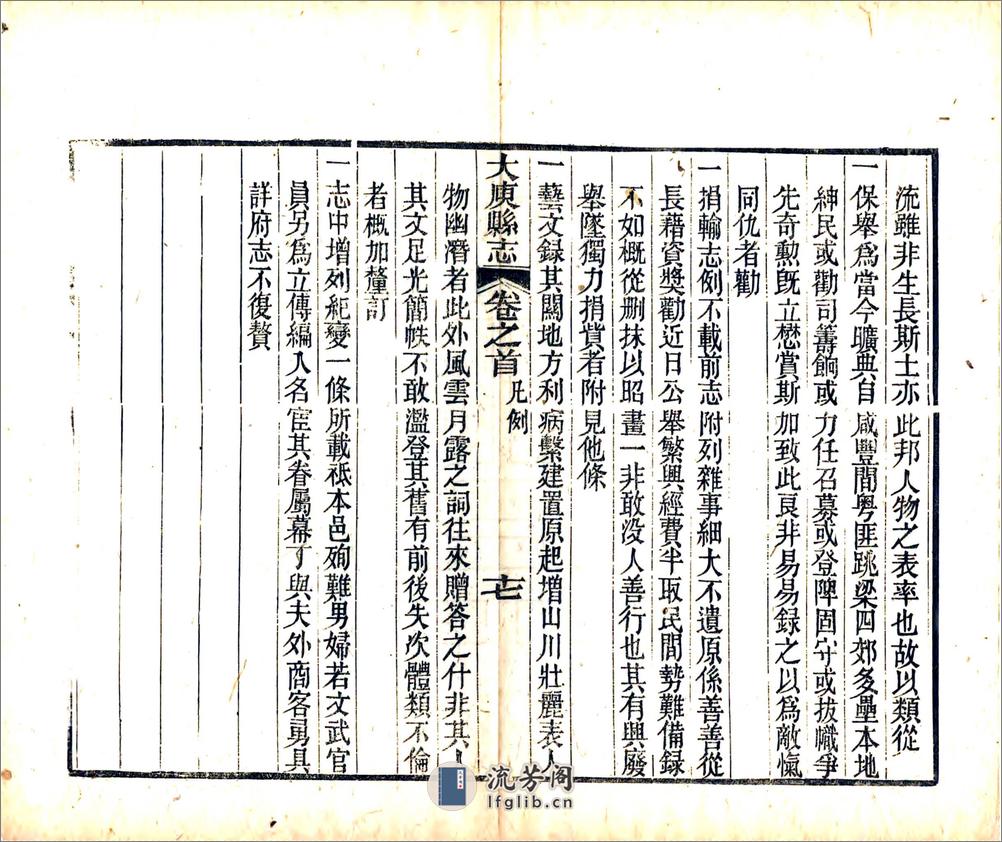 流雖非生長斯土亦此邦人物之表率也故以類從
一保舉爲當今曠典自咸豐間粤匪跳梁四郊多壘本地
紳民或勸司籌餉或力任召募或登陴固守或拔幟爭
先奇勲旣立懋賞斯加致此良非易易録之以爲敵愾
同仇者勸
一捐輸志例不載前志附列雜事細大不遺原係善善從
長藉資奬勸近日公舉繁興經費半取民間勢難備録
不如概從删抹以昭畫一非敢没人善行也其有興廢
舉墜獨力捐貲者附見他條
一藝文録其關地方利病繫建置原起增山川壯麗表人
大庾縣志 卷之首 凡例 十七
物幽潛者此外風雲月露之詞往來贈答之什非其人
其文足光簡帙不敢濫登其舊有前後失次體類不倫
者概加釐訂
一志中增列紀變一條所載祗本邑殉難男婦若文武官
員另爲立傳編入名宦其眷屬幕丁與夫外商客勇具
詳府志不復贅
流芳阁
lfglib.cn